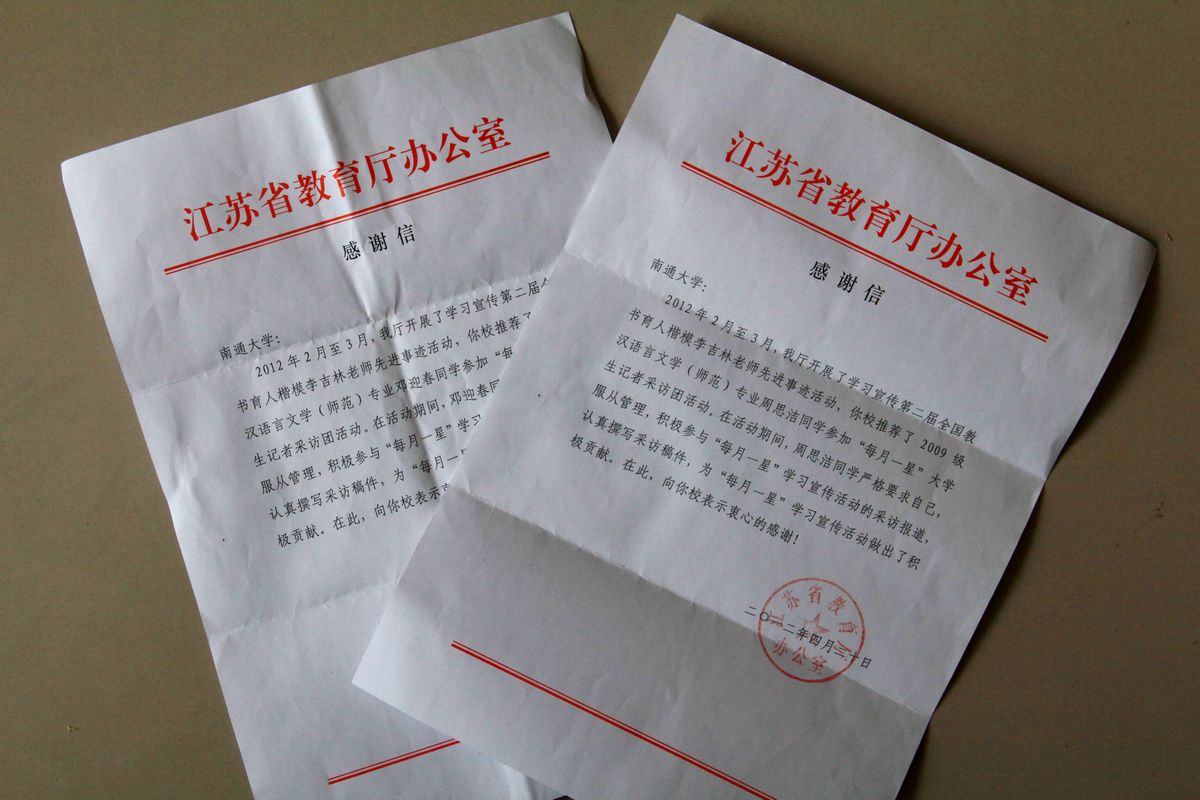 江苏省教育厅办公室
感谢信
南通大学：
2012年2月至3月，我厅开展了学习宣传第二届全
书育人楷模李吉林老师先进事迹活动，你校推荐了
汉语言文学（师范）专业邓迎春同学参加“每
生记者采访团活动。在活动期间，邓迎春同
服从管理，积极参与“每月一星”学习
认真撰写采访稿件，为“每月一星
极贡献。在此，向你校表示衷
江苏省教育厅办公室
感谢信
南通大学：
2012年2月至3月，我厅开展了学习宣传第二届全国教
书育人楷模李吉林老师先进事迹活动，你校推荐了2009级
汉语言文学（师范）专业周思洁同学参加“每月一星”大学
生记者采访团活动。在活动期间，周思洁同学严格要求自己，
服从管理，积极参与“每月一星”学习宣传活动的采访报道，
认真撰写采访稿件，为“每月一星”学习宣传活动做出了积
极贡献。在此，向你校表示衷心的感谢！
江苏省教育厅
办公室
二〇一二年四月三十日